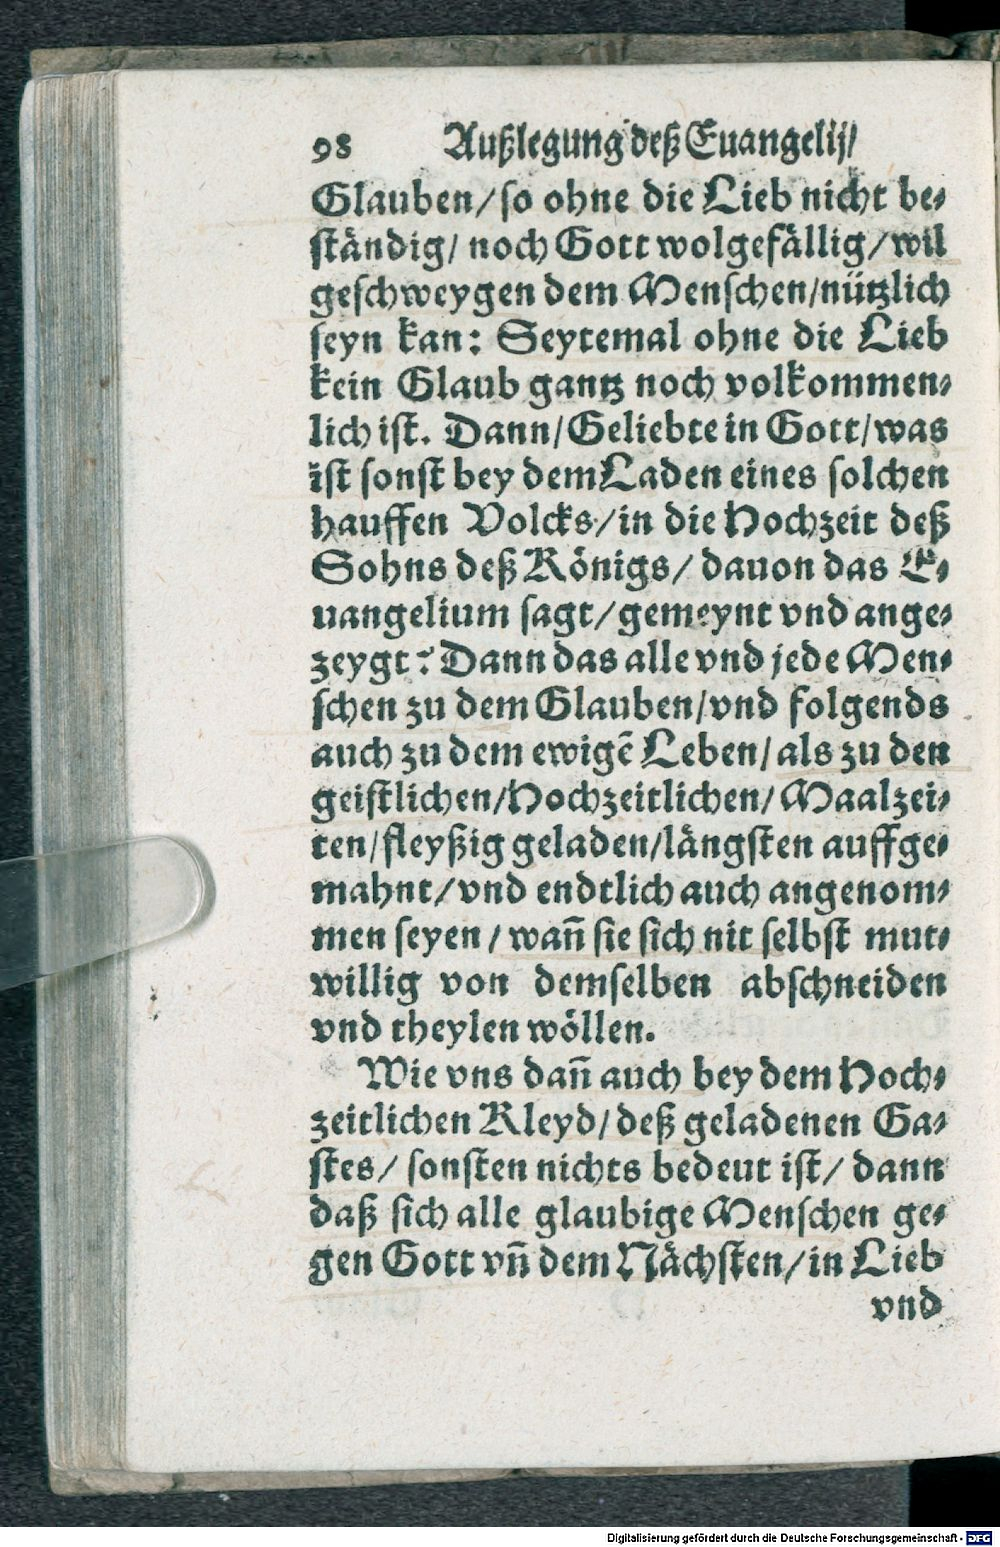 98 Außlegung deß Euangelij/
Glauben/ so ohne die Lieb nicht be-
ständig/ noch Gott wolgefällig/ wil
geschweygen dem Menschen/ nützlich
seyn kan: Seytemal ohne die Lieb
kein Glaub gantz noch volkommen-
lich ist. Dann/ Geliebte in Gott/ was
ist sonst bey dem Laden eines solchen
hauffen Volcks/ in die Hochzeit deß
Sohns deß Königs/ dauon das E-
uangelium sagt/ gemeynt vnd ange-
zeygt? Dann das alle vnd jede Men-
schen zu dem Glauben/ vnd folgends
auch zu dem ewigẽ Leben/ als zu den
geistlichen/ Hochzeitlichen/ Maalzei-
ten/ fleyßig geladen/ längsten auffge-
mahnt/ vnd endtlich auch angenom-
men seyen/ wañ sie sich nit selbst mut-
willig von demselben abschneiden
vnd theylen wöllen.
Wie vns dañ auch bey dem Hoch-
zeitlichen Kleyd/ deß geladenen Ga-
stes/ sonsten nichts bedeut ist/ dann
daß sich alle glaubige Menschen ge-
gen Gott vñ dem Nächsten/ in Lieb
vnd
Digitalisierung gefördert durch die Deutsche Forschungsgemeinschaft - DFG